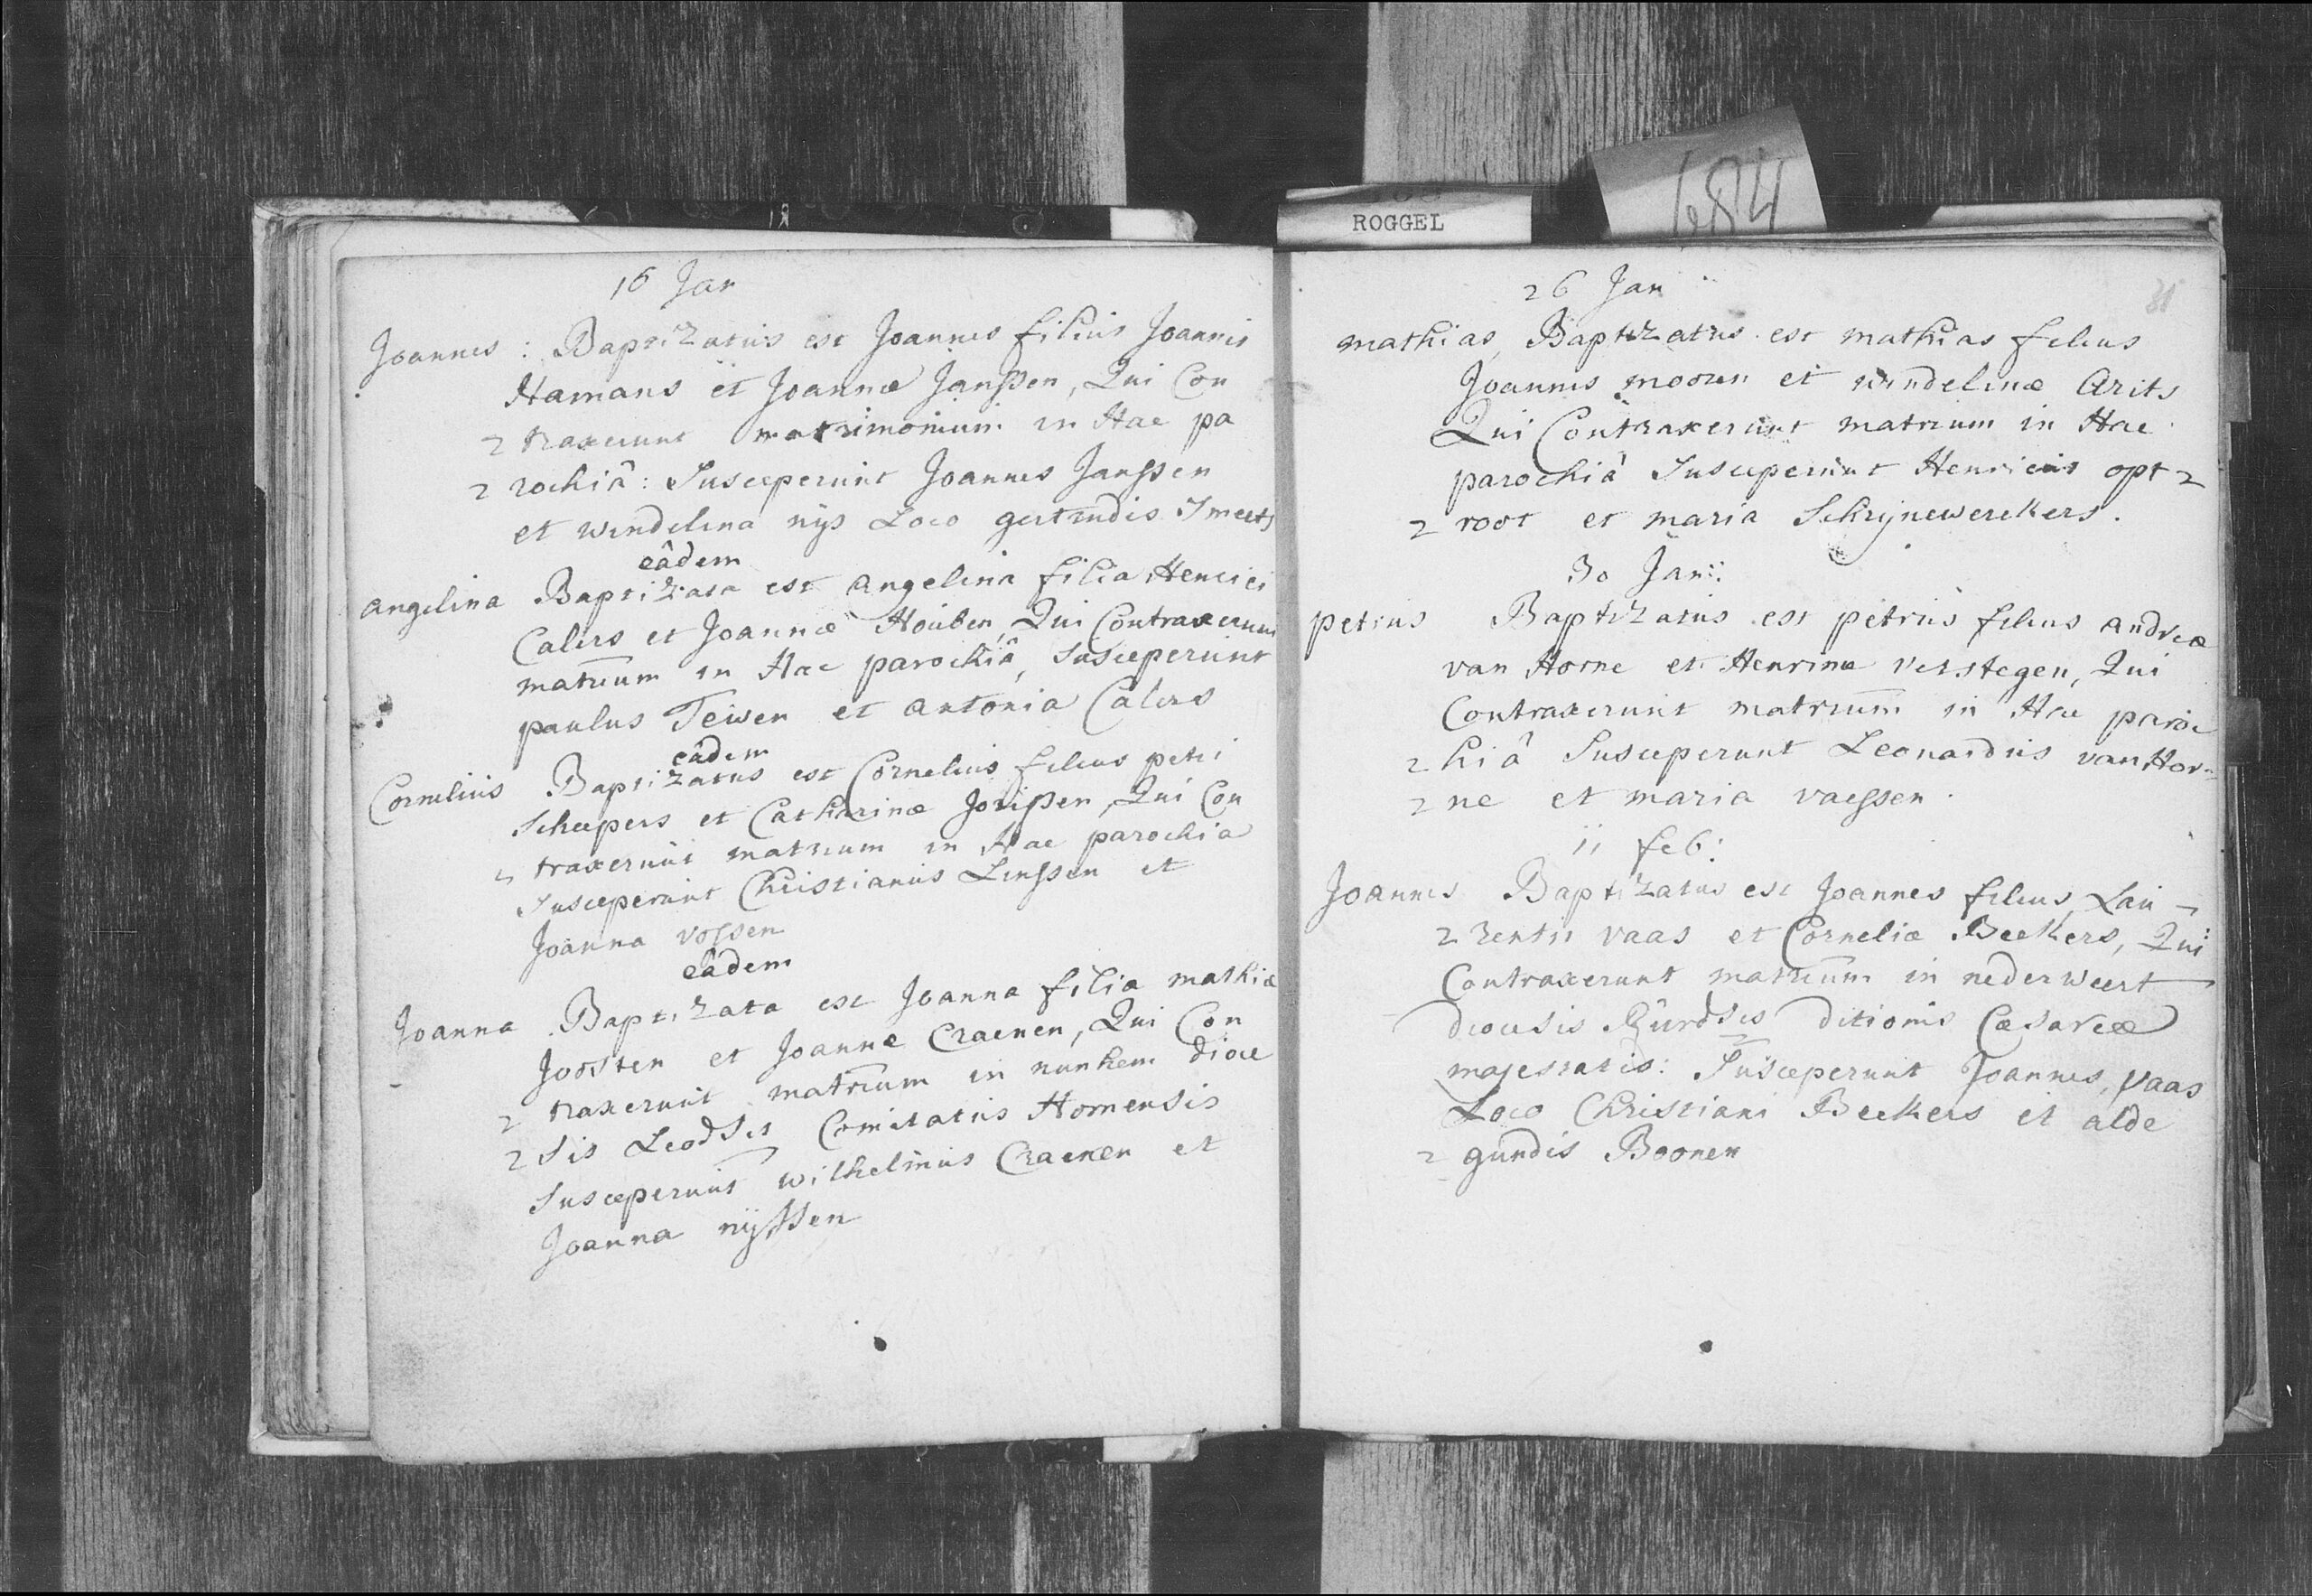 ROGGEL
684
16 Jan
Joannes : Baptizatus est Joannes filius Joannis
Hamans et Joannæ Janssen, Qui Con
2 traxerunt matrimonium in Hac pa
2 rochiâ : Susceperunt Joannes Janssen
et windelina nijs Loco gertrudis Smeets
eâdem
angelina Baptizata est angelina filia Henrici
Calers et Joannæ Houben, Qui Contraxerunt
matrium in Hac parochiâ, Susceperunt
paulus Teiwen et antonia Calers
eâdem
Cornelius Baptizatus est Cornelius filius petri
Scheepers et Catharinæ Jorissen, Qui Con
2 traxerunt matrium in Hac parochia
Susceperunt Christianus Linssen et
Joanna vossen
eâdem
Joanna Baptizata est Joanna filia mathiæ
Joosten et Joannæ Craenen, Qui Con
2 traxerunt matrium in nunhem dioce
2 sis Leodsis Comitatus Hornensis
Susceperunt wilhelmus Craenen et
Joanna nijssen
26 Jan
31
mathias, Baptizatus est mathias filius
Joannis moosen et windelinæ Arits
Qui Contraxerunt matrium in Hac
parochiâ Susceperunt Henricus opt 2
2 root et maria Schrijnewerckers.
30 Jan:
petrus Baptizatus est petrus filius andreæ
van Horne et Henrinæ verstegen, Qui
Contraxerunt matrium in Hac paroc
2 hiâ Susceperunt Leonardus van Hor=
2 ne et maria vaessen.
11 feb:
Joannes Baptizatus est Joannes filius Lau-
2 rentii vaas et Corneliæ Beekers, Qui
Contraxerunt matrium in nederweert
diocesis Rurdsis ditionis Cæsareæ
majestatis: Susceperunt Joannes vaas
Loco Christiani Beekers et alde
2 gundis Boonen